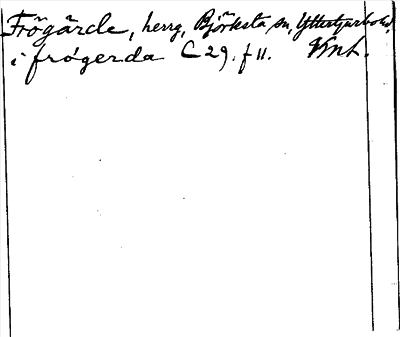 Frögärde, herrg, Björksta sn, Yttertjurbo hd.
i frógerda C 29. f 11. Vml.